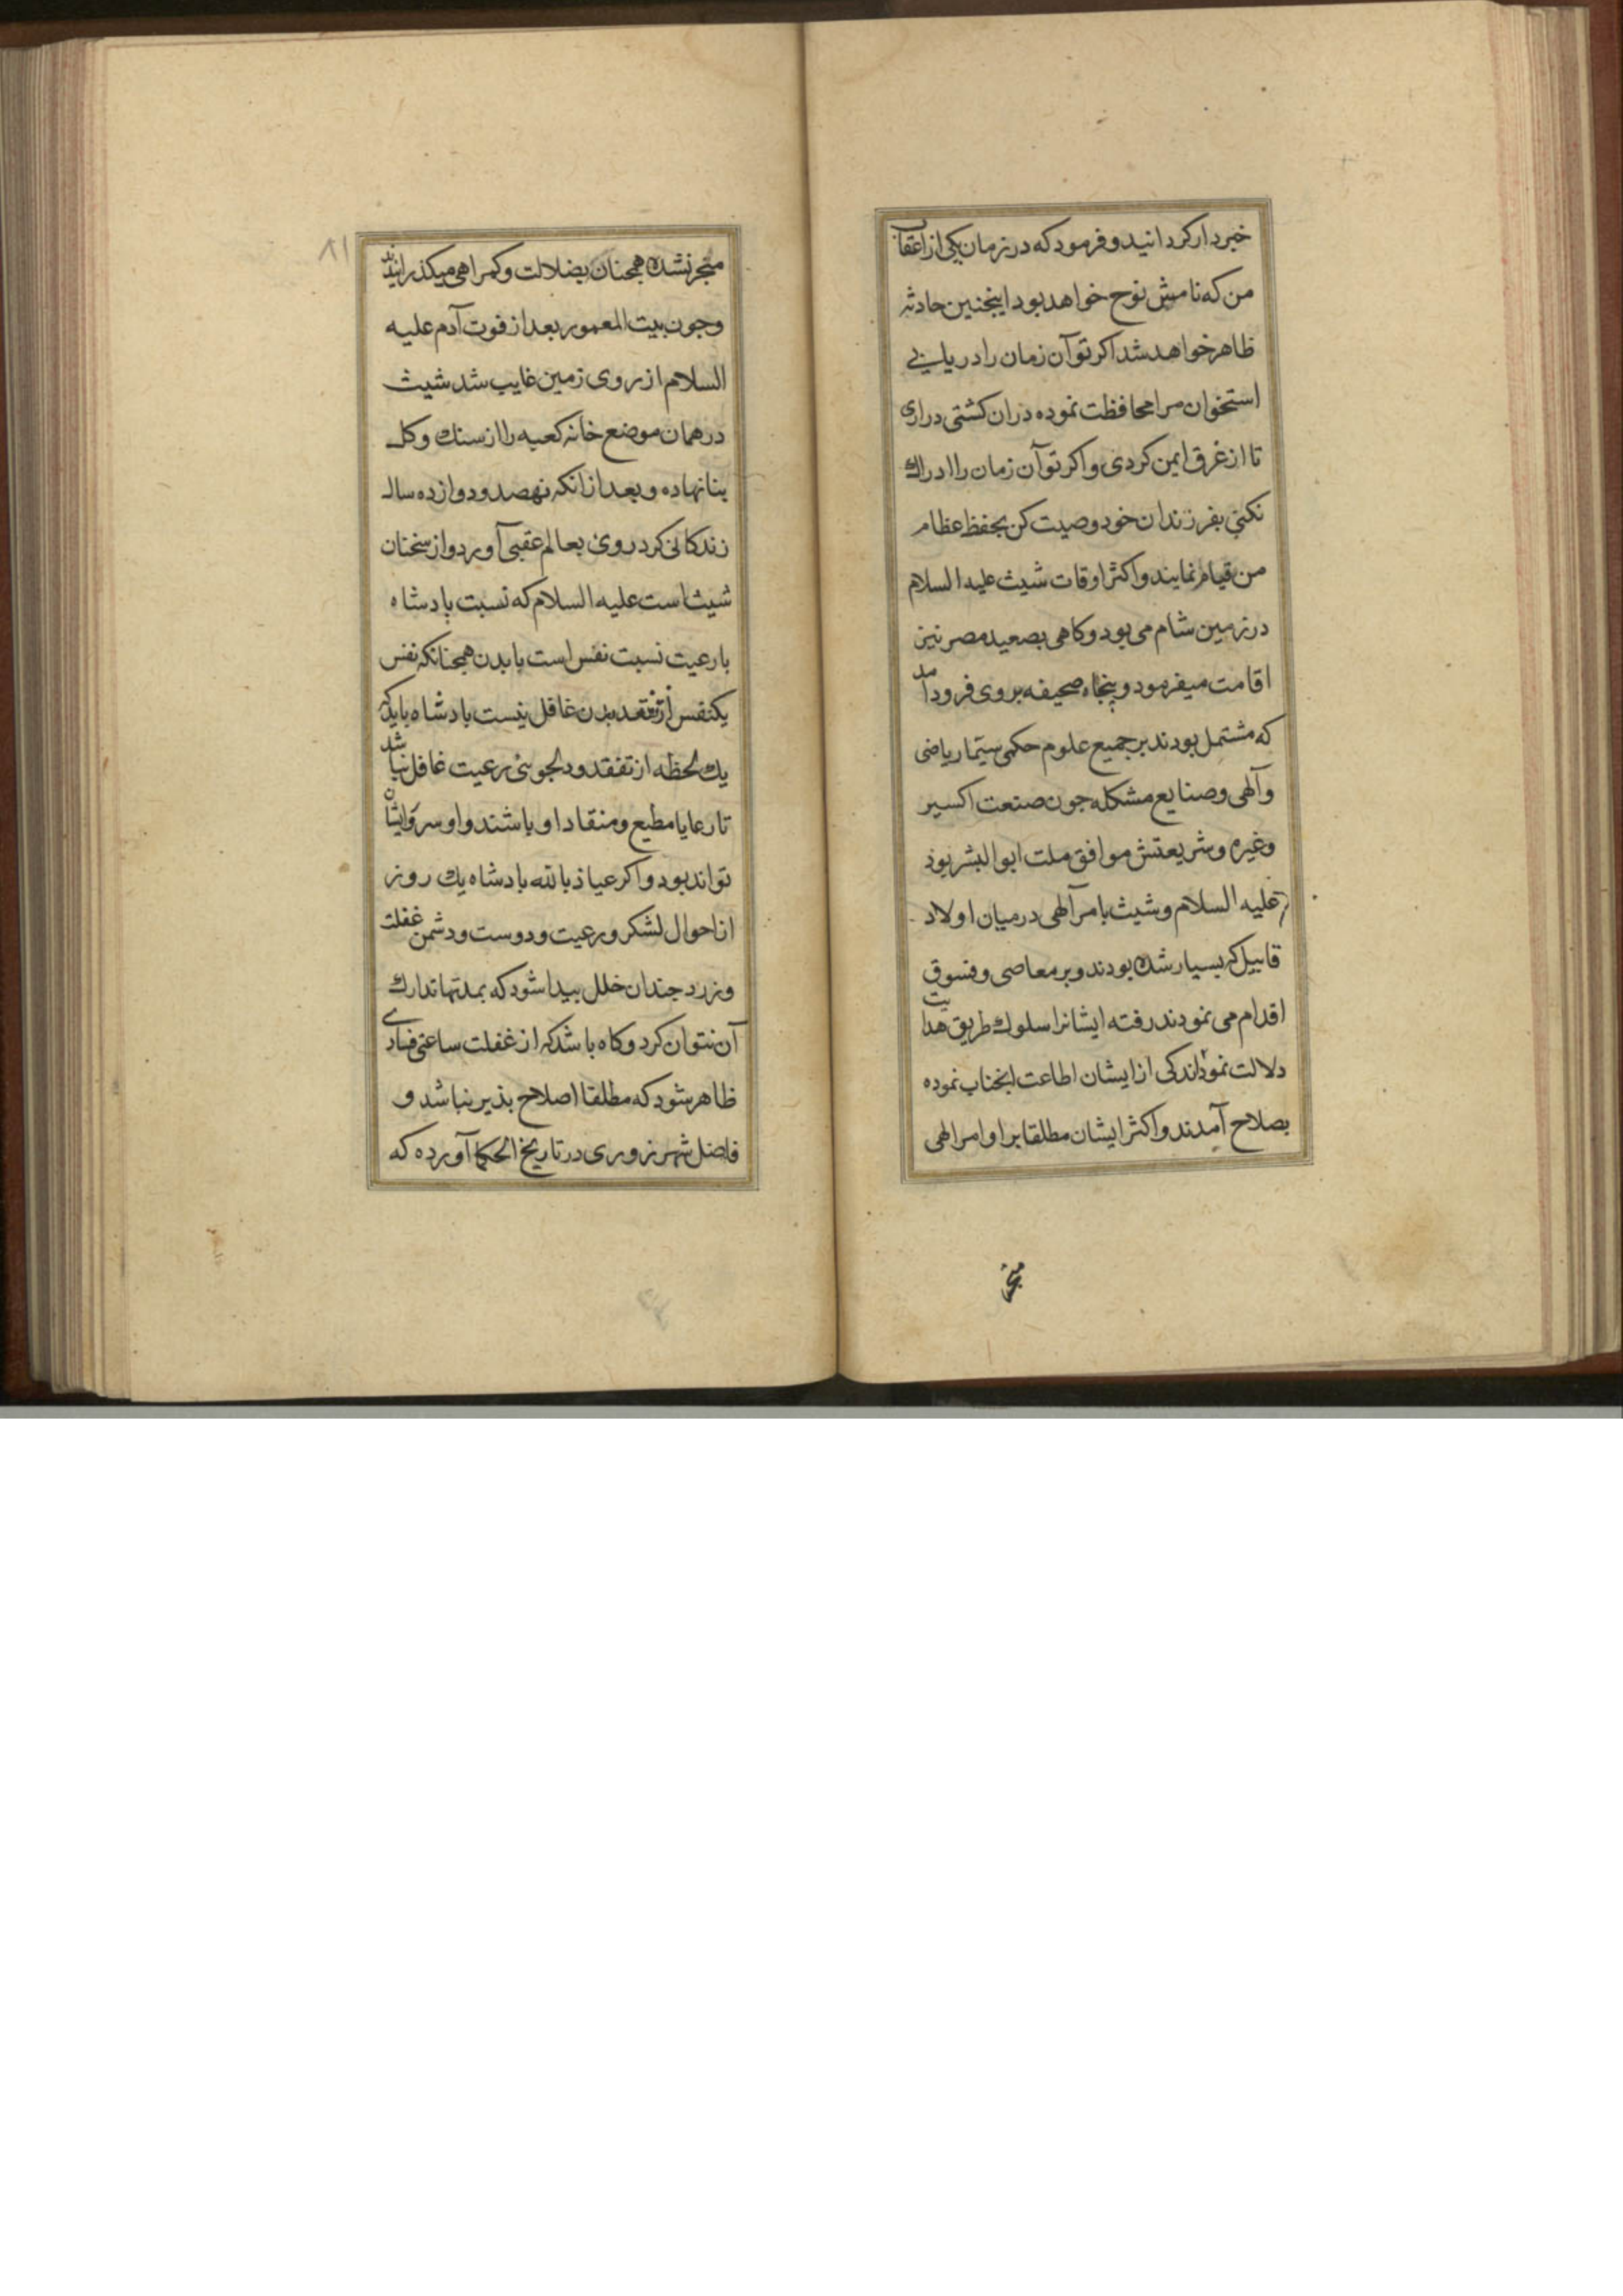 خبردار کردانید و فرمود که در زمان یکی از اعقاب
من که نامش نوح خواهد بود اینجنین حادثه
ظاهر خواهد شد اکر تو آن زمان را دریابی
استخوان مرا محافظت نموده در ان کشتی دراری
تا از غرق ایمن کردی و اکر تو آن زمان را ادراک
نکنی بفرزندان خود وصیت کن بحفظ عظام
من قیام نمایند و اکثر اوقات شیث علیه السلام
در زمین شام می بود و کاهی بصعید مصر نیز
اقامت میفرمود و پنجاه صحیفه بروی فرود آمد
که مشتمل بودند بر جمیع علوم حکمی سیما ریاضی
و آلهی و صنایع مشکله جون صنعت اکسیر
و غیره و شریعتش موافق ملت ابو البشر بود
علیه السلام و شیث بامر آلهی در میان اولاد
قابیل که بسیار شده بودند و بر معاصی و فسوق
اقدام می نمودند رفته ایشانرا سلوک طریق هدایت
دلالت نمود اندکی از ایشان اطاعت انجناب نموده
بصلاح آمدند و اکثر ایشان مطلقا بر اوامر الهی
منجر
۸۱
منجر نشده همجنان بضلالت و کمراهی میکذرانیدند
و جون بیت المعمور بعد از فوت آدم علیه
السلام از روی زمین غایب شد شیث
در همان موضع خانه کعبه را از سنک و کل
بنا نهاده و بعد از انکه نهصد و دوازده سال
زندکانی کرد روی بعالم عقبی آورد و از سخنان
شیث است علیه السلام که نسبت پادشاه
با رعیت نسبت نفس است با بدن همجنانکه نفس
یکنفس از تفقد بدن غافل نیست بادشاه باید که
یک لحظه از تفقد و دلجوئی رعیت غافل نباشد
تا رعایا مطیع و منقاد او باشند و او سرو ایشان
تواند بود و اکر عیاذ بالله بادشاه یک روز
از احوال لشکر و رعیت و دوست و دشمن غفلت
ورزد جندان خلل بیدا شود که بمدتها تدارک
آن نتوان کرد و کاه باشد که از غفلت ساعتی فسادی
ظاهر شود که مطلقا اصلاح بذیر نباشد و
فاضل شهرزوری در تاریخ الحکما آورده که